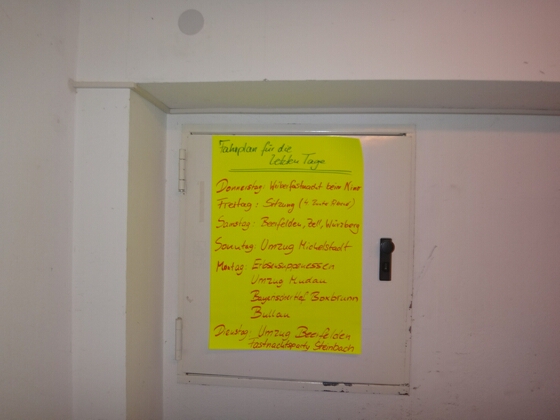 Fahrplan für die
letzten Tage
Donnerstag: Weiberfastnacht beim
Freitag: Sitzung (
Samstag: Beerfelden, Zell, Würzberg
Sonntag: Umzug Michelstadt
Montag: Erbsensuppenessen
Umzug Mudau
Boxbrunn
Bullau
Dienstag: Umzug Beerfelden
Fastnachtsparty Steinbach